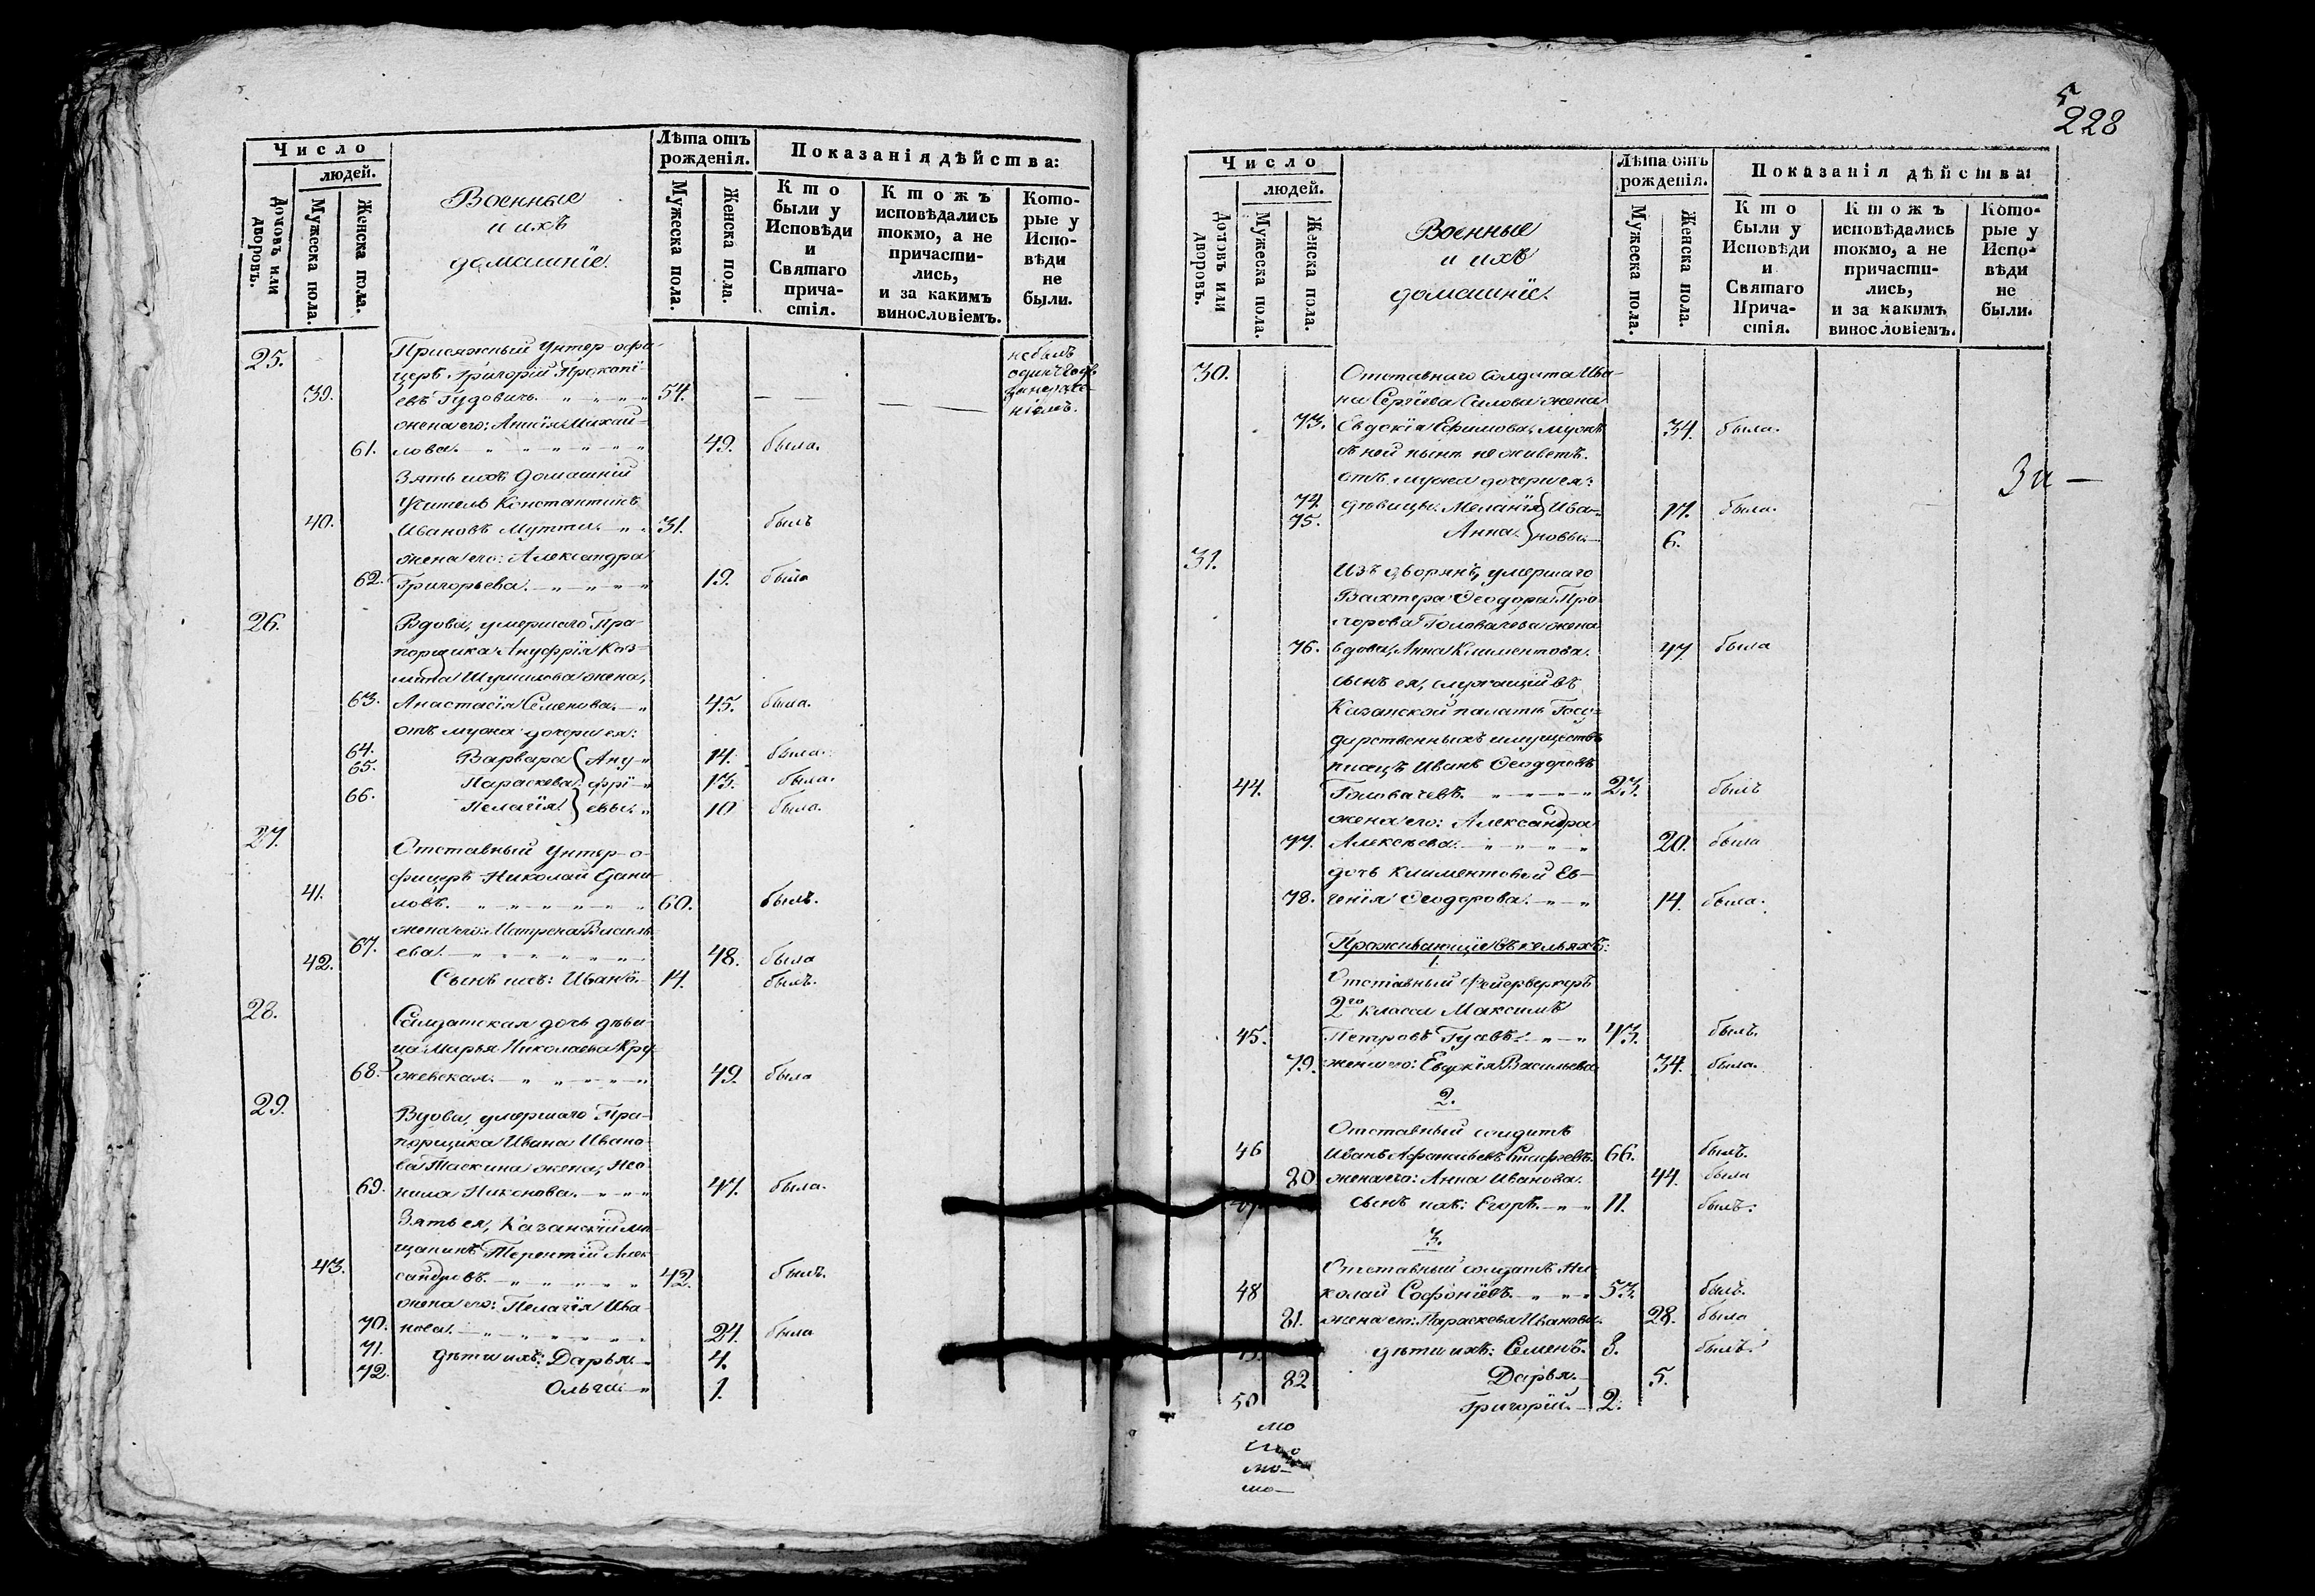 Число
людей.
Домовъ или дворовъ.
Мужеска пола.
Женска пола.
Военные
и ихъ
домашніе.
Лѣта отъ
рожденія.
Мужеска пола.
Женска пола.
Показанія дѣйства:
Кто были у Исповѣди и Святаго прича-стія.
Ктожъ исповѣдались токмо, а не причасти-лись, и за какимъ винословіемъ.
Кото-рые у Испо-вѣди не были.
25.
Присяжный Унтер-офи-
церъ Григорій Прокопі-
39. евъ Гудовичъ. 54.
не былъ
жена его: Анна Михай-
61. лова. 49. была.
Зять ихъ домашній
Учитель Константинъ
40. Ивановъ 31. былъ
жена его: Александра
62. Григорьева. 19. была
26. Вдова, умершаго Пра-
порщика Ануфрія Коз-
мина Шумилова жена,
63. Анастасія Семенова. 45. была.
отъ мужа дочери ея:
64. Варвара Ану- 14. была.
65. Параскева фрі- 13. была.
66. Пелагія евы. 10 была.
27. Отставный Унтер-о-
фицеръ Николай Дани-
41. ловъ. 60. былъ.
жена его: Матрена Василь-
67. ева. 48. была
42. Сынъ ихъ: Иванъ. 14. былъ.
28. Солдатская дочь дѣви-
ца Марья Николаева Кру-
68. жевская. 49. была
29. Вдова, умершаго Пра-
порщика Ивана Ивано-
ва Таскина жена, Нео-
69. нила Никонова. 47. была.
Зять ея, Казанскій мѣ-
щанинъ Терентій Алек-
43. сандровъ. 42. былъ.
жена его: Пелагія Ива-
70. нова. 24. была
71. дѣти ихъ: Дарья. 4.
72. Ольга 1.
5
228
Число
людей.
Домовъ или дворовъ.
Мужеска пола.
Женска пола.
Военные
и ихъ
домашніе.
Лѣта отъ
рожденія.
Мужеска пола.
Женска пола.
Показанія дѣйства:
Кто были у Исповѣди и Святаго Прича-стія.
Ктожъ исповѣдались токмо, а не причасти-лись, и за какимъ винословіемъ.
Кото-рые у Испо-вѣди не были.
30. Отставнаго солдата Ива-
на Сергѣева Силова жена
73. Евдокія Ефимова, мужъ
съ ней нынѣ не живетъ. 34. была.
отъ мужа дочери ея:
74. дѣвицы: Меланія Ива- 17. была.
75. Анна новы. 6.
31. Изъ дворянъ, умершаго
Вахтера Ѳеодора Про-
хорова Головачева жена
76. вдова, Анна Климентова. 47 была
сынъ ея, служащій въ
Казанской палатѣ Госу-
дарственныхъ имуществъ
писецъ Иванъ Ѳеодоровъ
44. Головачевъ. 23. былъ
жена его: Александра
77. Алексѣева. 20. была
дочь Климентовой Ев-
78. генія Ѳеодорова. 14. была.
Проживающіе въ кельяхъ:
1.
Отставный Фейерверкеръ
2го класса Максимъ
45. Петровъ Гусевъ. 43. былъ.
79. жена его: Евдокія Васильева 34. была.
2.
Отставный солдатъ
46 Иванъ Афанасьевъ 66. былъ.
80 жена его: Анна Иванова. 44. была
сынъ ихъ: Егоръ. 11. былъ.
3.
Отставный солдатъ Ни-
48 колай Софоніевъ. 53. былъ.
81. жена его: Параскева Иванова. 28. была
дѣти ихъ: Семенъ. 8. былъ.
82 Дарья. 5.
50 Григорій. 2.